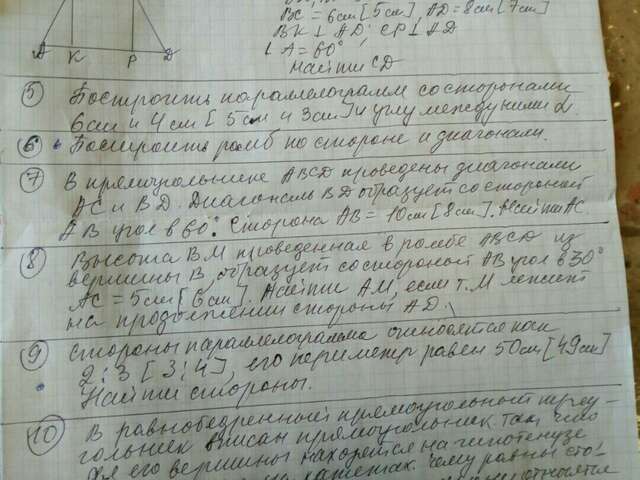 BC = 6см [5см], AD = 8см [7см]
BK ⊥ AD; CP ⊥ AD
∠A = 60°
Найти CD
A K P D
5 Построить параллелограмм со сторонами
6см и 4см [5см и 3см] и углу между ними α.
6 Построить ромб по стороне и диагонали.
7 В прямоугольнике ABCD проведены диагонали
AC и BD. Диагональ BD образует со стороной
AB угол в 60°. Сторона AB = 10см [8см]. Найти AC.
8 Высота BM проведенная в ромбе ABCD из
вершины B, образует со стороной AB угол в 30°
AC = 5см [6см]. Найти AM, если т. M лежит
на продолжении стороны AD.
9 Стороны параллелограмма относятся как
2:3 [3:4], его периметр равен 50см [49см]
Найти стороны.
10 В равнобедренный прямоугольный треу-
гольник вписан прямоугольник так, что
две его вершины находятся на гипотенузе
на катетах. Чему равны сто-
относятся